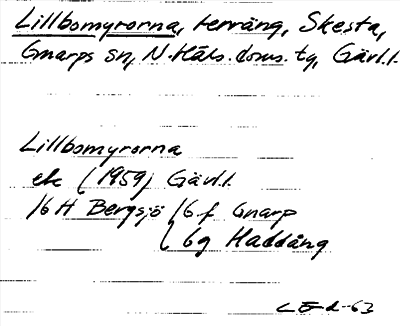 Lillbomyrorna, terräng, Skesta,
Gnarps sn, N. Häls. doms. tg, Gävl.l.
Lillbomyrorna
ek (1959) Gävl.l.
16 H Bergsjö 16 f Gnarp
6g Haddång